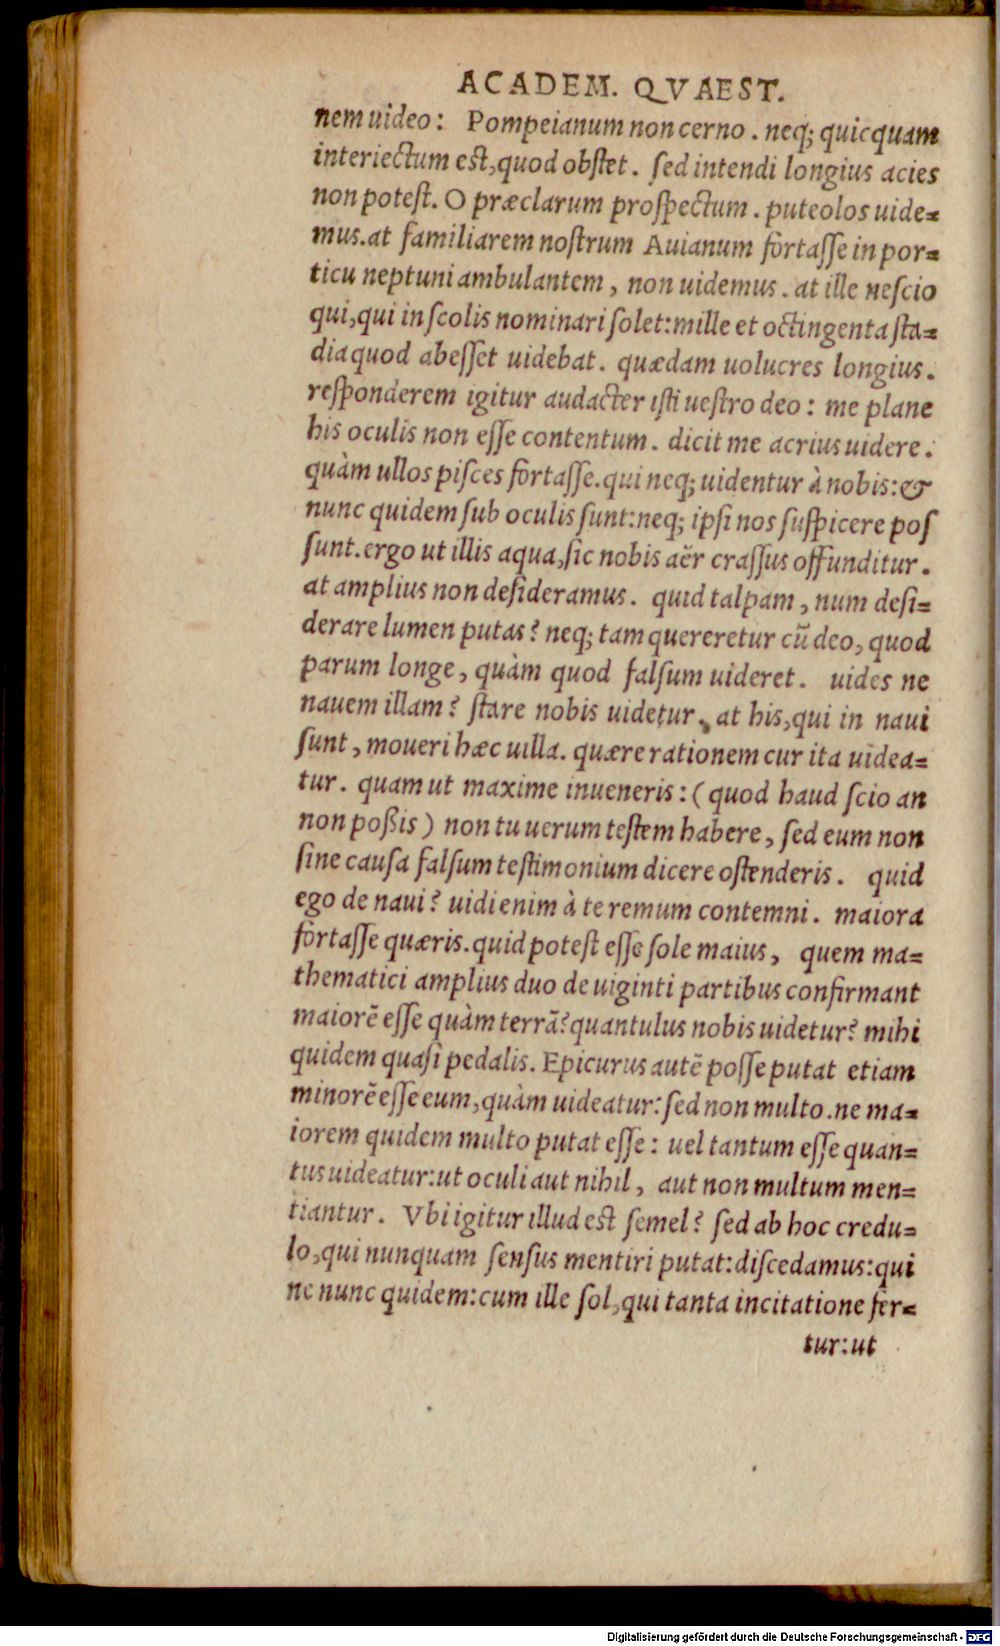 ACADEM. QVAEST.
nem uideo: Pompeianum non cerno. neq; quicquam
interiectum est, quod obſtet. ſed intendi longius acies
non poteſt. O præclarum proſpectum. puteolos uide=
mus. at familiarem noſtrum Auianum fortaſſe in por=
ticu neptuni ambulantem, non uidemus. at ille neſcio
qui, qui in ſcolis nominari ſolet: mille et octingenta ſta=
dia quod abeſſet uidebat. quædam uolucres longius.
reſponderem igitur audacter iſti ueſtro deo: me plane
his oculis non eſſe contentum. dicit me acrius uidere:
quàm ullos piſces fortaſſe. qui neq; uidentur à nobis: &
nunc quidem ſub oculis ſunt: neq; ipſi nos ſuſpicere poſ
ſunt. ergo ut illis aqua, ſic nobis aër craſſus offunditur.
at amplius non deſideramus. quid talpam, num deſi=
derare lumen putas? neq; tam quereretur cũ deo, quod
parum longe, quàm quod falſum uideret. uides ne
nauem illam? ſtare nobis uidetur. at his, qui in naui
ſunt, moueri hæc uilla. quære rationem cur ita uidea=
tur. quam ut maxime inueneris: (quod haud ſcio an
non poßis) non tu uerum teſtem habere, ſed eum non
ſine cauſa falſum teſtimonium dicere oſtenderis. quid
ego de naui? uidi enim à te remum contemni. maiora
fortaſſe quæris. quid poteſt eſſe ſole maius, quem ma=
thematici amplius duo de uiginti partibus confirmant
maiorẽ eſſe quàm terrã? quantulus nobis uidetur? mihi
quidem quaſi pedalis. Epicurus autẽ poſſe putat etiam
minorẽ eſſe eum, quàm uideatur: ſed non multo. ne ma=
iorem quidem multo putat eſſe: uel tantum eſſe quan=
tus uideatur: ut oculi aut nihil, aut non multum men=
tiantur. Vbi igitur illud est ſemel? ſed ab hoc credu=
lo, qui nunquam ſenſus mentiri putat: diſcedamus: qui
ne nunc quidem: cum ille ſol, qui tanta incitatione fer=
tur: ut
Digitalisierung gefördert durch die Deutsche Forschungsgemeinschaft - DFG